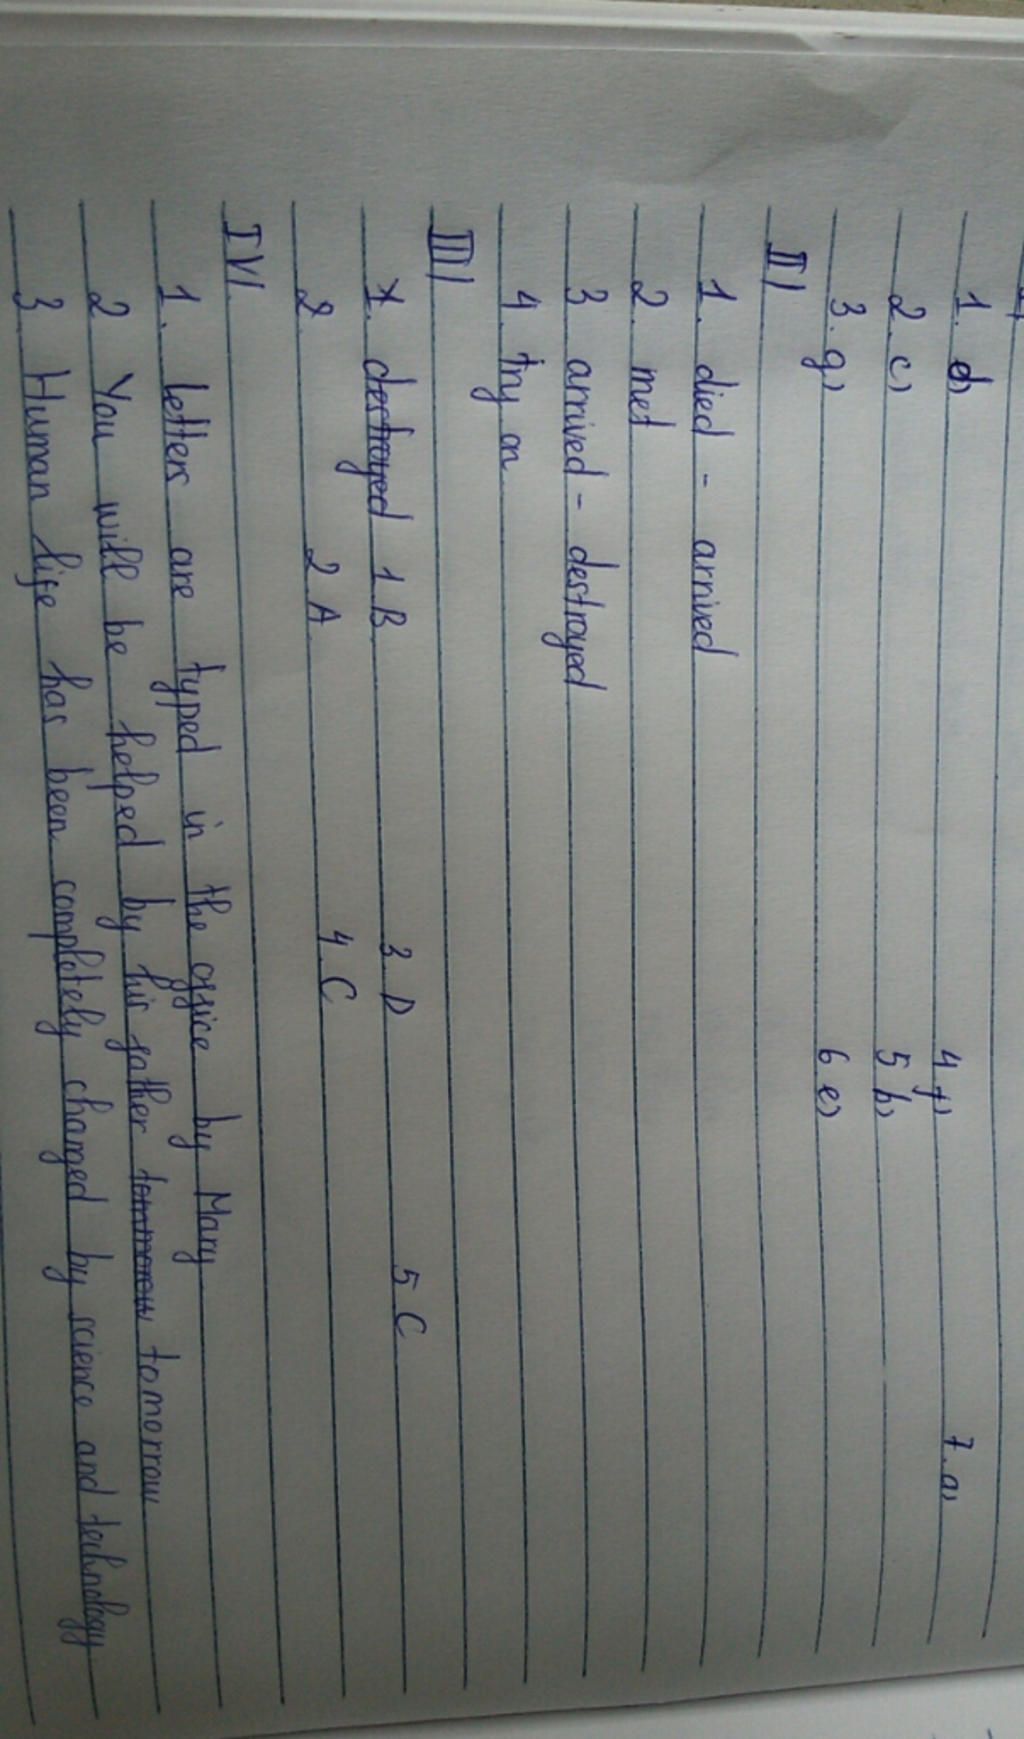 1. d) 4. f) 7. a)
2. c) 5 b)
3. g) 6 e)
II)
1. died - arrived
2. met
3 arrived - destroyed
4. try on
III)
1. destroyed 1 B 3 D 5 C
2 2 A 4. C
IV)
1. letters are typed in the office by Mary
2 You will be helped by his father tomorrow
3 Human life has been completely changed by science and technology